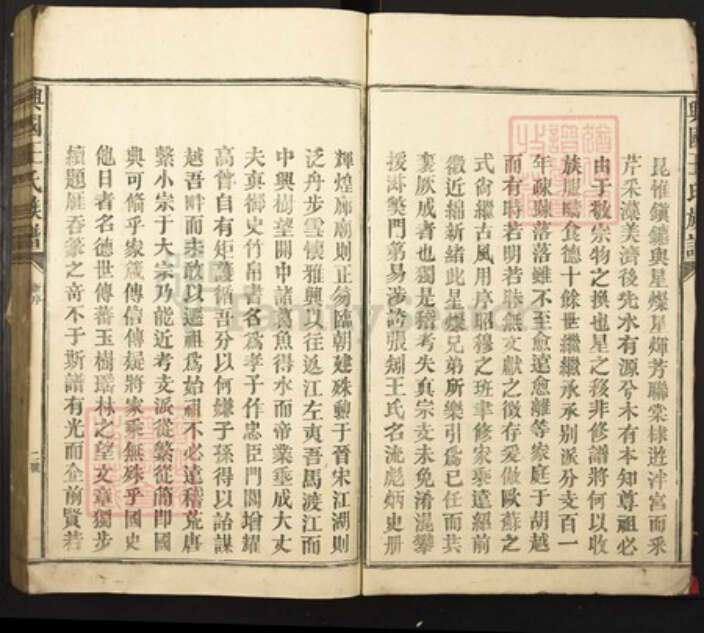 興國王氏族譜
昆惟鎮鑣與星燦星輝芳聯棠棣遊泮宮而采
芹采藻美濟後先水有源兮木有本知尊祖必
由于敬宗物之換也星之移非修譜將何以收
族服疇食德十餘世繼繼承承別派分支百一
年疎疎落落雖不至愈遠愈離等家庭于胡越
而有時若明若昧無文獻之徵存爰倣歐蘇之
式尚繼古風用序昭穆之班聿修家乘遠紹前
徽近綿新緒此星燦兄弟所樂引為己任而共
襄厥成者也獨是稽考失真宗支未免淆混攀
援掛獎門第易涉誇張矧王氏名流彪炳史册
輝煌廊廟則正笏臨朝建殊勳于晉宋江湖則
泛舟步雪懷雅興以往返江左夷吾馬渡江而
中興樹望關中諸葛魚得水而帝業垂成大丈
夫真御史竹帛書名為孝子作忠臣門閭增耀
高曾自有矩矱循吾分以何嫌子孫得以詒謀
越吾畔而未敢以遷祖為始祖不必遠稽荒唐
繫小宗于大宗乃能近考支派從繁從簡即國
典可脩乎家箴傳信傳疑將家乘無殊乎國史
他日者名德世傳蕃玉樹瑤林之望文章獨步
續題雁吞篆之奇不于斯譜有光而企前賢若
興國王氏族譜
二號